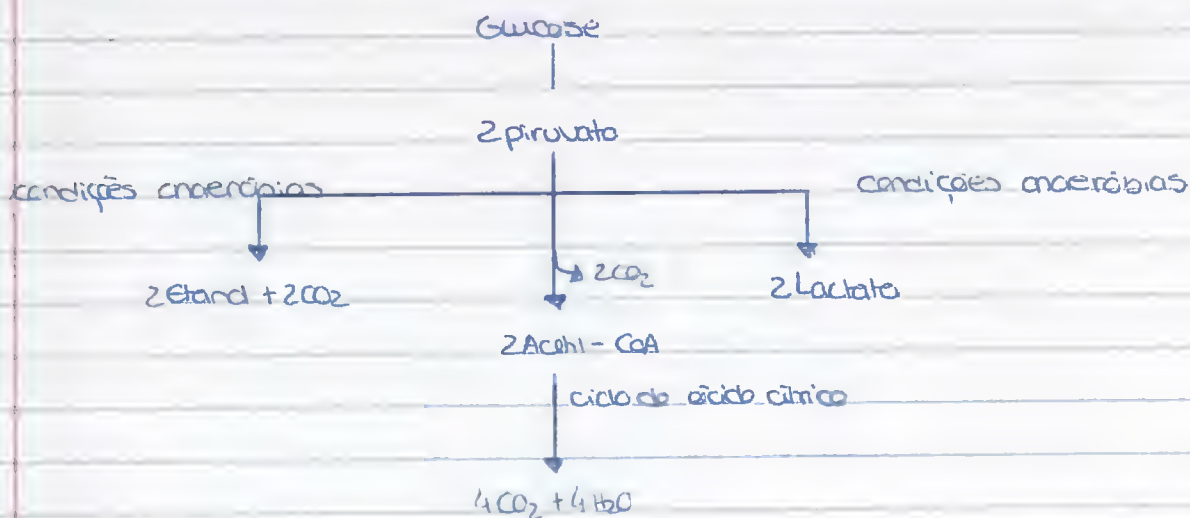 Glucose
2 piruvato
condições anaeróbias
condições anaeróbias
2 Etanol + 2CO2
2CO2
2 Lactato
2 Acetil - CoA
ciclo do ácido cítrico
4 CO2 + 4 H2O